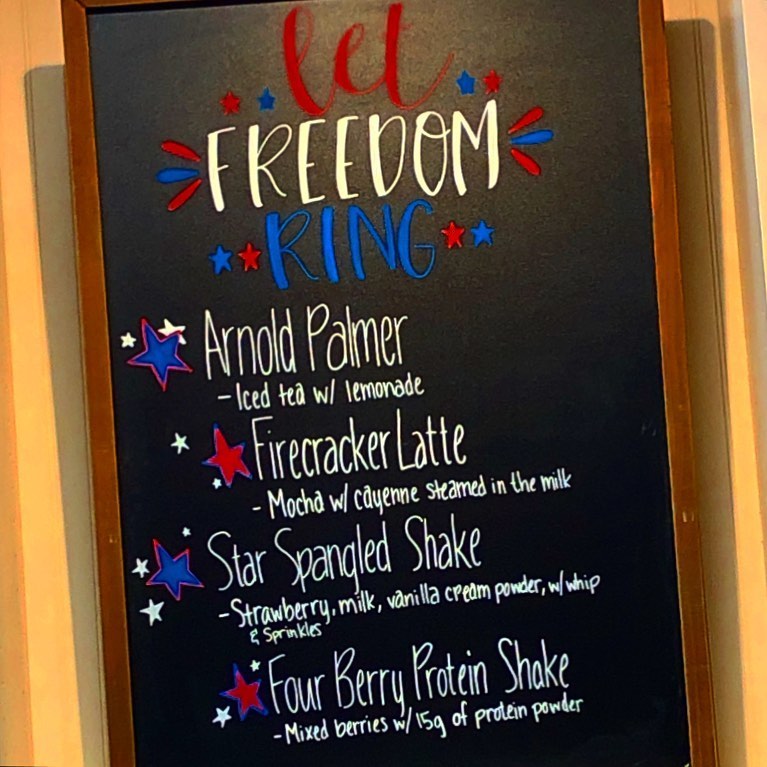 let
FREEDOM
RING
Arnold Palmer
- Iced tea w/ lemonade
Firecracker Latte
- Mocha w/ cayenne steamed in the milk
Star Spangled Shake
- Strawberry, milk, vanilla cream powder, w/ whip
& Sprinkles
Four Berry Protein Shake
- Mixed berries w/ 15g of protein powder